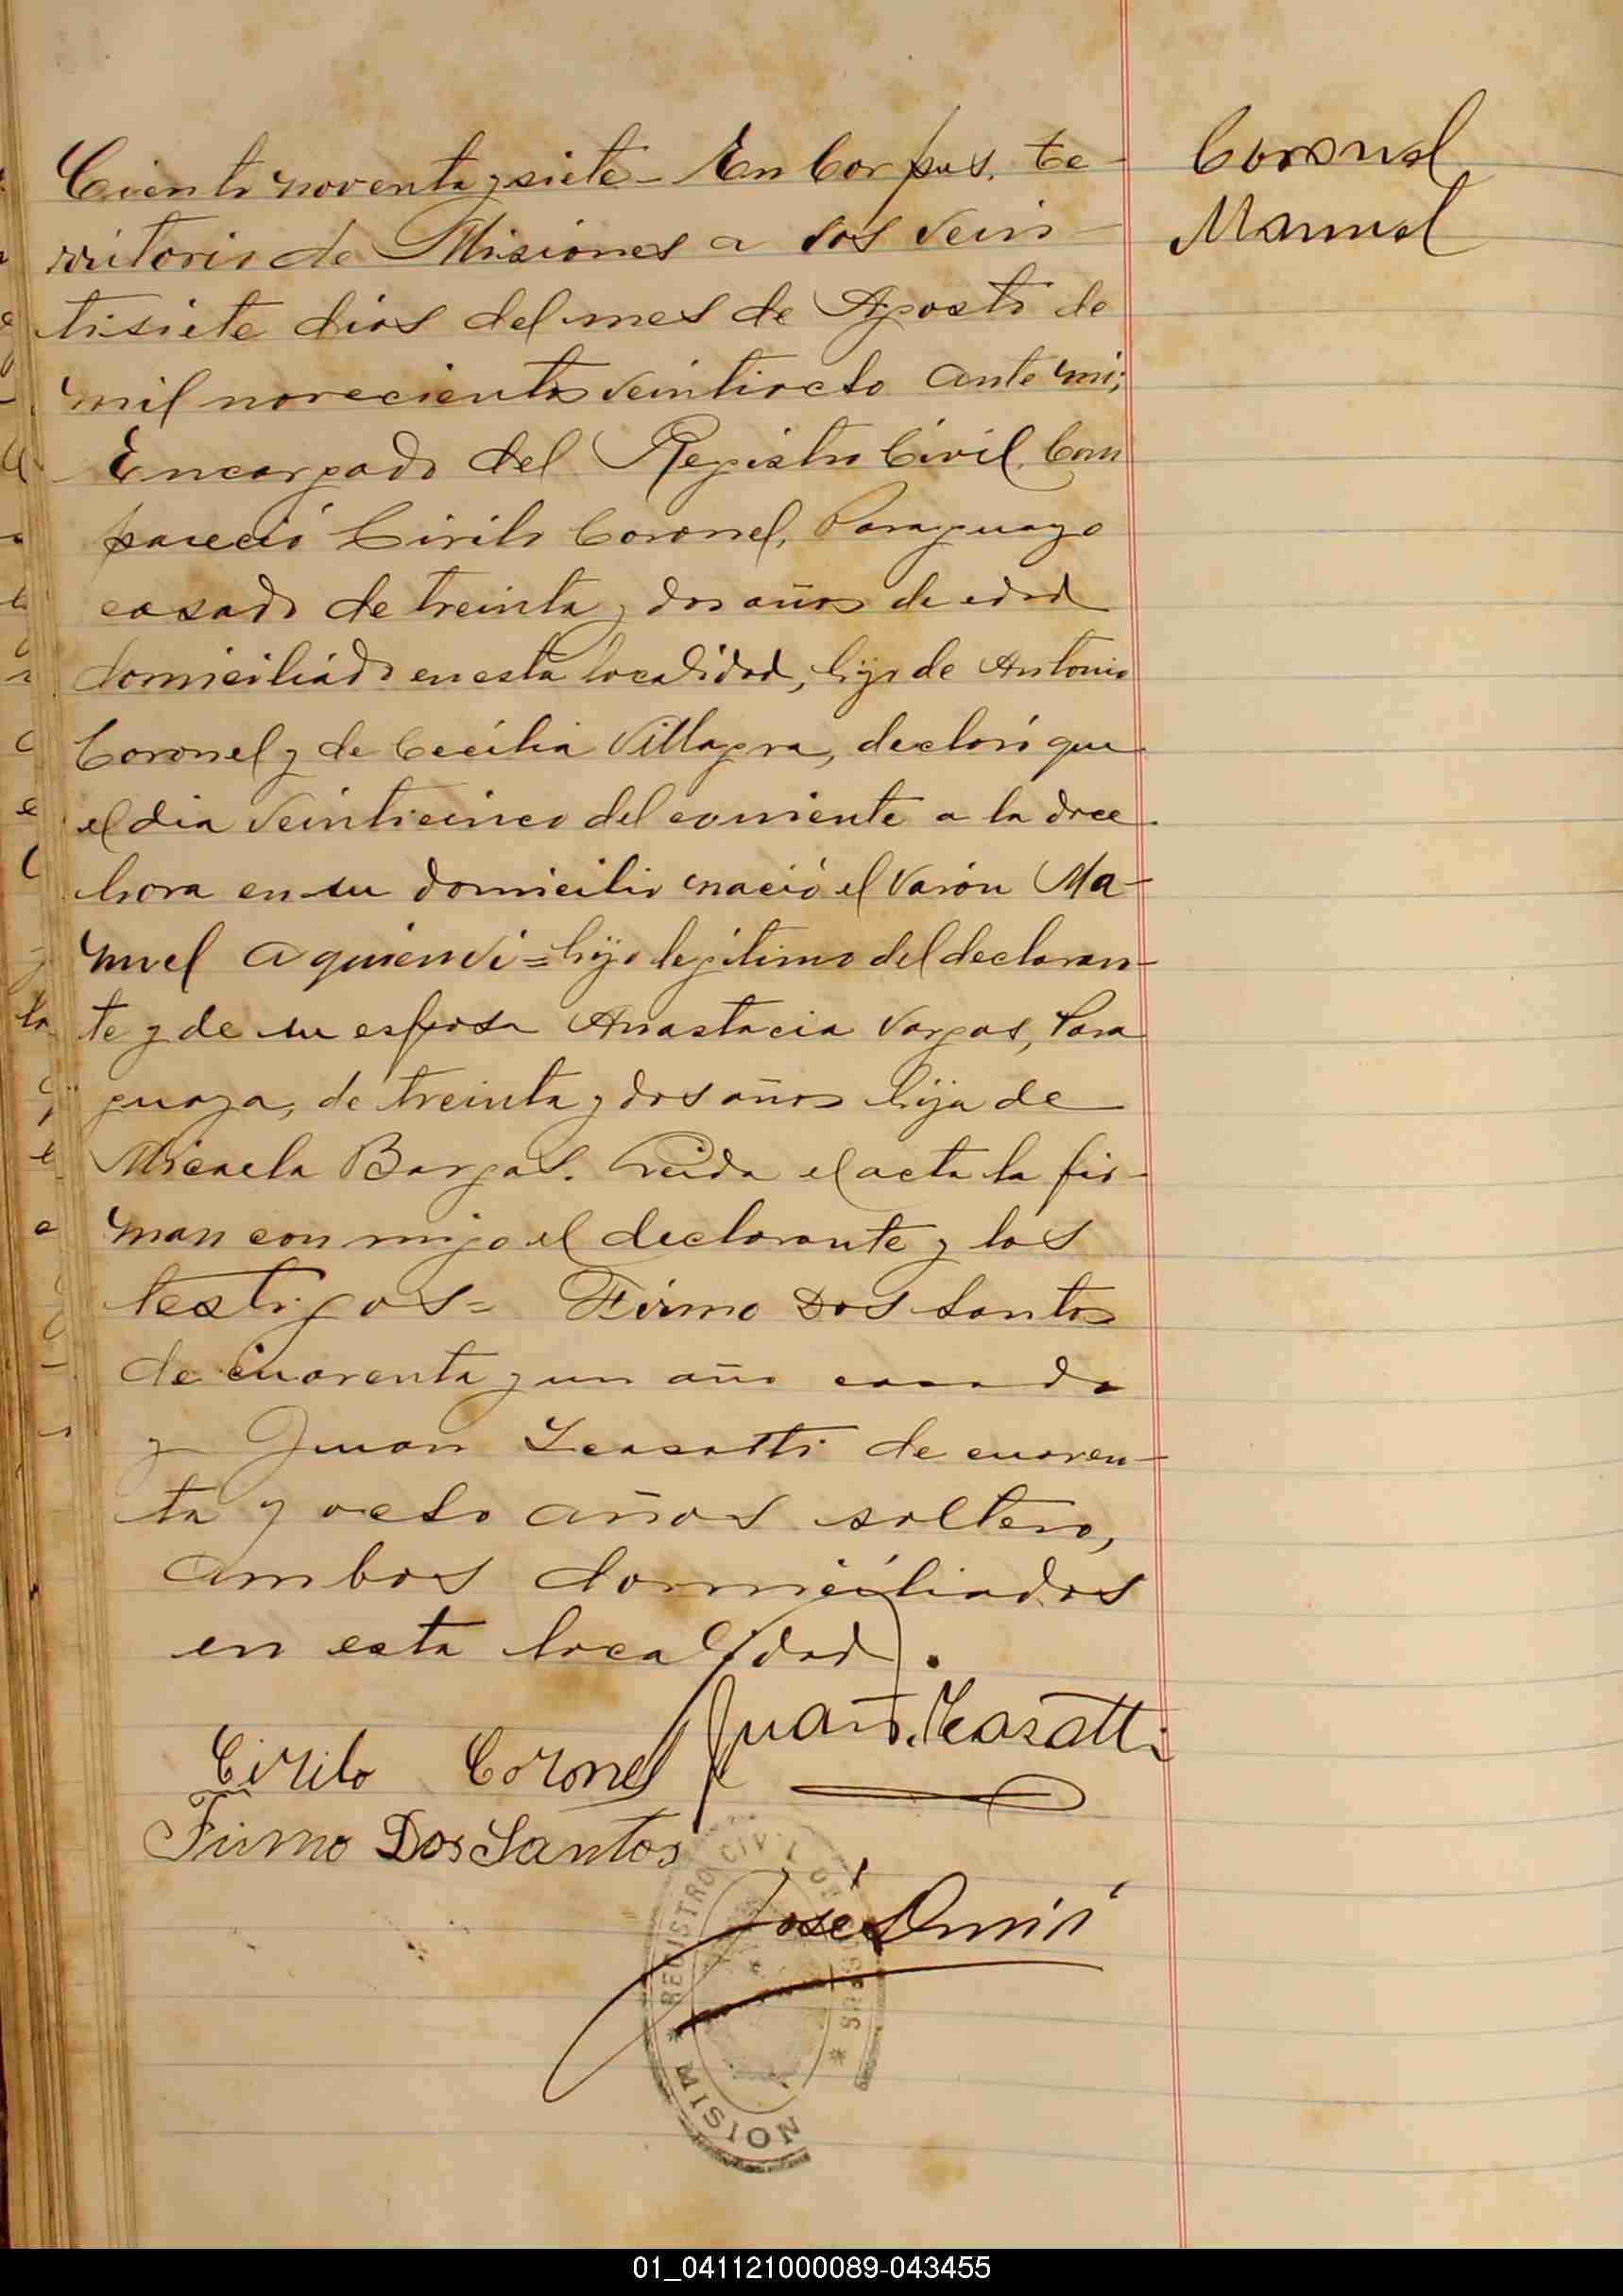 Coronel
Manuel
Ciento noventa y siete - En Corpus, te-
rritorio de Misiones a los vein-
tisiete dias del mes de Agosto de
mil novecientos veintiocho ante mi;
Encargado del Registro Civil, Com
pareció Cirilo Coronel, Paraguayo
casado de treinta y dos años de edad
domiciliado en esta localidad, hijo de Antonio
Coronel y de Cecilia Villagra, declaró que
el dia veinticinco del corriente a la doce
hora en su domicilio nació el varón Ma-
nuel a quien vi = hijo legitimo del declaran-
te y de su esposa Anastacia Vargas, Para
guaya, de treinta y dos años hija de
Micaela Bargas. Leida el acta la fir-
man con migo el declarante y los
testigos = Firmo Dos Santos
de cuarenta y un año casado
y Juan de cuaren-
ta y ocho años soltero,
ambos domiciliados
en esta localidad.
Juan
Cirilo Coronel
Firmo Dos Santos
José
REGISTRO CIVIL DE CORPUS
* MISIONES *
01_041121000089-043455